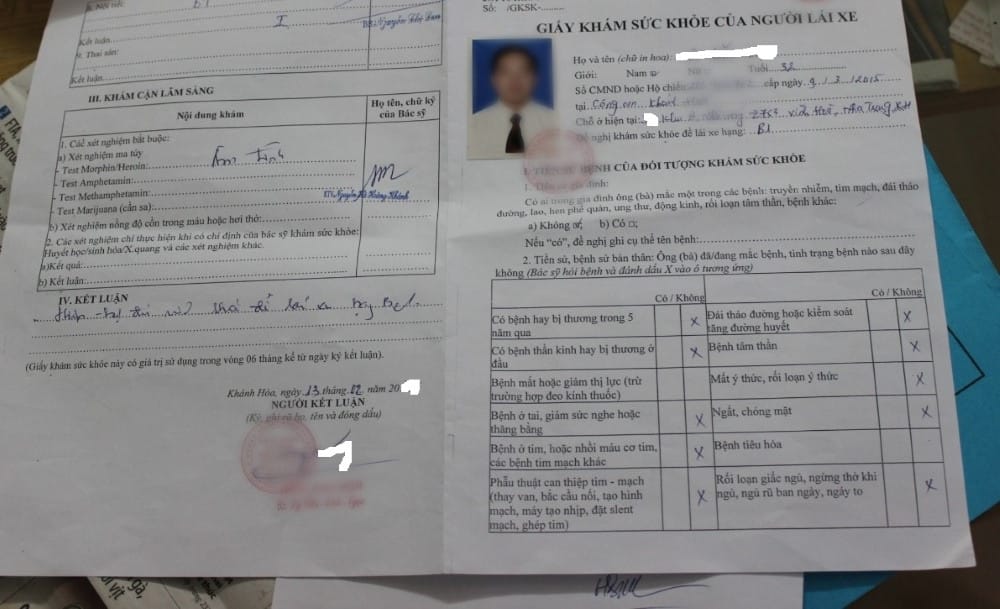 5. Nội tiết:
Kết luận
I
BS. Nguyễn Thị
9. Thai sản:
Kết luận
III. KHÁM CẬN LÂM SÀNG
Nội dung khám
Họ tên, chữ ký
của Bác sỹ
1. Các xét nghiệm bắt buộc:
a) Xét nghiệm ma túy
- Test Morphin/Heroin:
Âm Tính
- Test Amphetamin:
- Test Methamphetamin:
- Test Marijuana (cần sa):
b) Xét nghiệm nồng độ cồn trong máu hoặc hơi thở:
2. Các xét nghiệm chỉ thực hiện khi có chỉ định của bác sỹ khám sức khỏe:
Huyết học/sinh hóa/X.quang và các xét nghiệm khác.
a)Kết quả:
b) Kết luận:
IV. KẾT LUẬN
(Giấy khám sức khỏe này có giá trị sử dụng trong vòng 06 tháng kể từ ngày ký kết luận).
Khánh Hòa, ngày 13 tháng 02 năm 20
NGƯỜI KẾT LUẬN
(Ký, ghi rõ họ, tên và đóng dấu)
Số: /GKSK-
GIẤY KHÁM SỨC KHỎE CỦA NGƯỜI LÁI XE
Họ và tên (chữ in hoa):
Giới: Nam Nữ Tuổi 32
Số CMND hoặc Hộ chiếu cấp ngày 9/3/2015
tại Công an Khánh
Chỗ ở hiện tại: Nha Trang KH
Đề nghị khám sức khỏe để lái xe hạng: B1
I. TIỀN SỬ BỆNH CỦA ĐỐI TƯỢNG KHÁM SỨC KHỎE
1. Tiền sử gia đình:
Có ai trong gia đình ông (bà) mắc một trong các bệnh: truyền nhiễm, tim mạch, đái tháo
đường, lao, hen phế quản, ung thư, động kinh, rối loạn tâm thần, bệnh khác:
a) Không b) Có □;
Nếu “có”, đề nghị ghi cụ thể tên bệnh:
2. Tiền sử, bệnh sử bản thân: Ông (bà) đã/đang mắc bệnh, tình trạng bệnh nào sau đây
không (Bác sỹ hỏi bệnh và đánh dấu X vào ô tương ứng)
Có / Không Có / Không
Có bệnh hay bị thương trong 5
năm qua
X
Đái tháo đường hoặc kiểm soát
tăng đường huyết
X
Có bệnh thần kinh hay bị thương ở
đầu
X
Bệnh tâm thần
X
Bệnh mắt hoặc giảm thị lực (trừ
trường hợp đeo kính thuốc)
Mất ý thức, rối loạn ý thức
X
Bệnh ở tai, giảm sức nghe hoặc
thăng bằng
X
Ngất, chóng mặt
X
Bệnh ở tim, hoặc nhồi máu cơ tim,
các bệnh tim mạch khác
X
Bệnh tiêu hóa
Phẫu thuật can thiệp tim - mạch
(thay van, bắc cầu nối, tạo hình
mạch, máy tạo nhịp, đặt slent
mạch, ghép tim)
X
Rối loạn giấc ngủ, ngừng thở khi
ngủ, ngủ rũ ban ngày, ngáy to
X